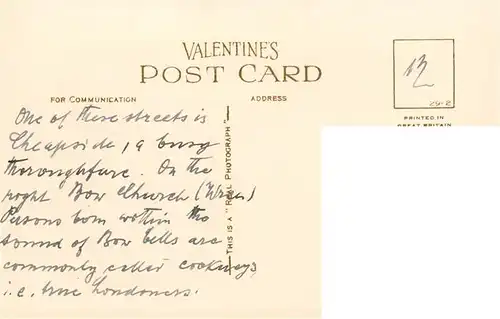 VALENTINE'S
POST CARD
FOR COMMUNICATION
ADDRESS
13
25-2
PRINTED IN
GREAT BRITAIN
THIS IS A "REAL PHOTOGRAPH"
One of these streets is
Cheapside, a busy
thoroughfare. On the
right Bow Church (Wren)
Persons born within the
sound of Bow bells are
commonly called cockneys
i.e. true Londoners.